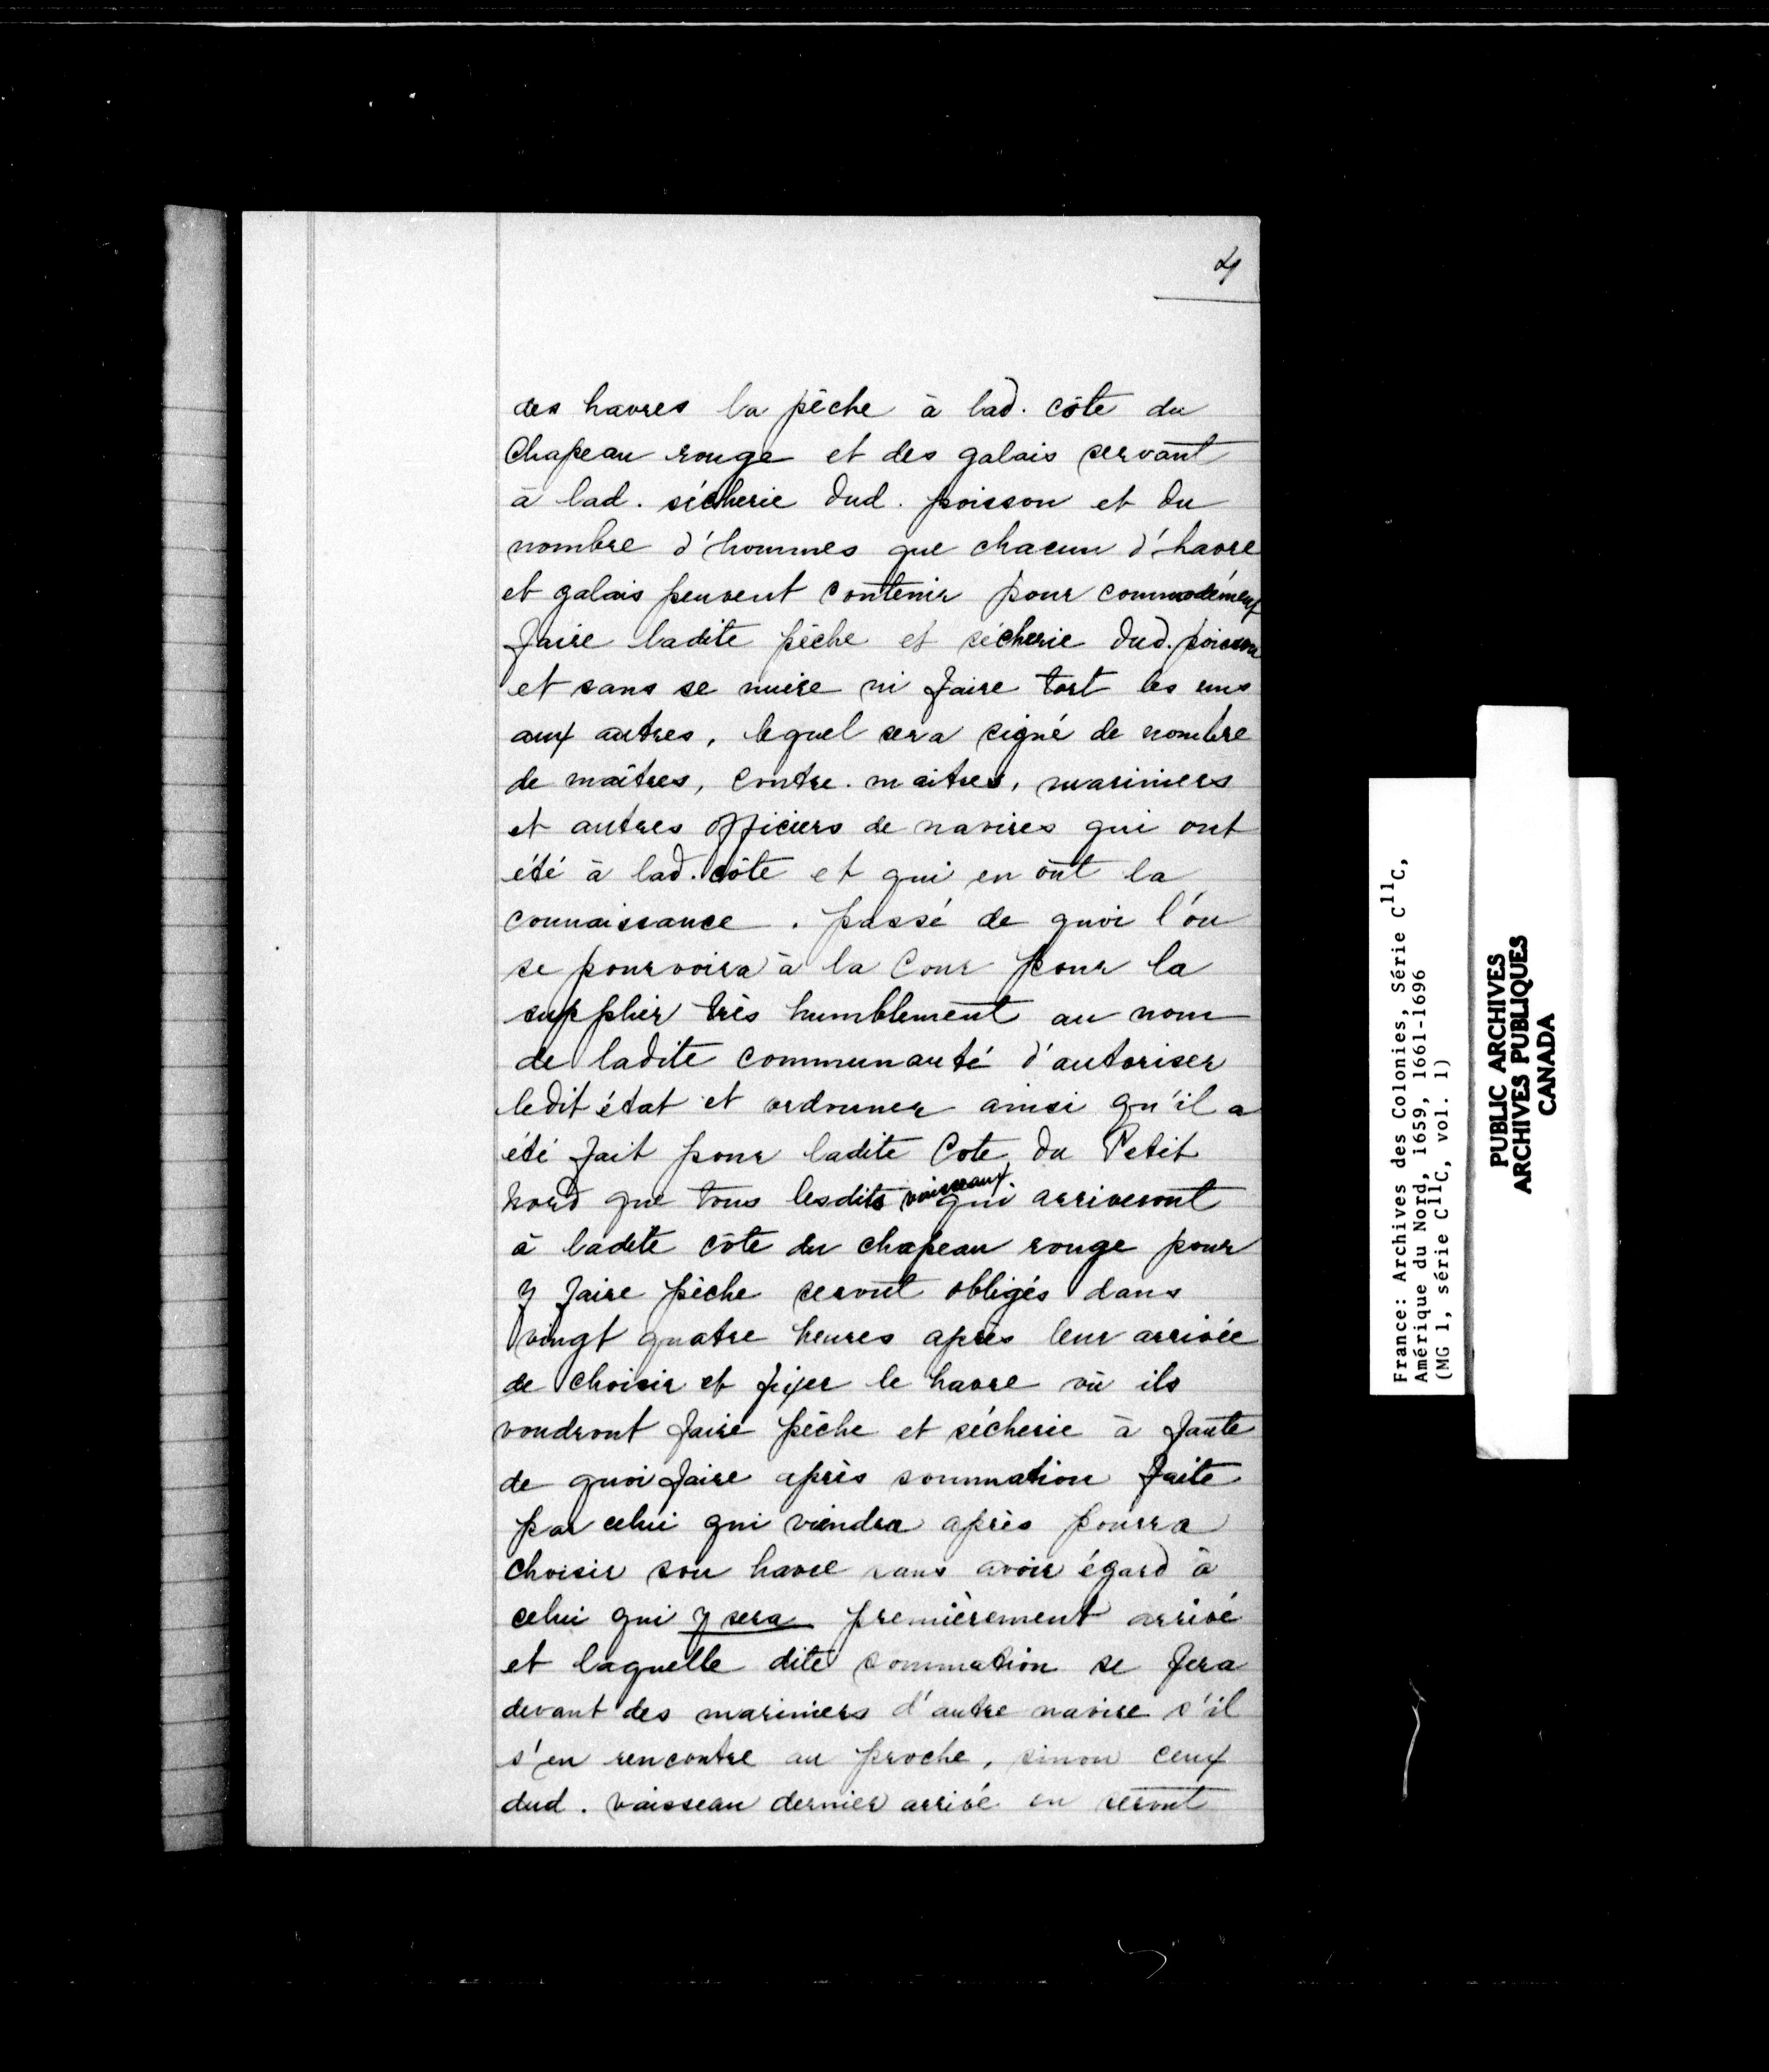 4
des havres la pêche à lad. côte du
Chapeau rouge et des galais servant
à lad. sécherie dud. poisson et du
nombre d'hommes que chacun d'havre
et galais peuvent contenir pour commodément
faire ladite pêche et sécherie dud. poisson
et sans se nuire ni faire tort les uns
aux autres, lequel sera signé de nombre
de maîtres, contre-maîtres, mariniers
et autres officiers de navires qui ont
été à lad. côte et qui en ont la
connaissance. passé de quoi l'on
se pourvoira à la Cour pour la
supplier très humblement au nom
de ladite communauté d'autoriser
ledit état et ordonner ainsi qu'il a
été fait pour ladite Cote du Petit
Nord que tous lesdits vaisseaux qui arriveront
à ladite côte du chapeau rouge pour
y faire pêche seront obligés dans
vingt quatre heures après leur arrivée
de choisir et fixer le havre où ils
voudront faire pêche et sécherie à faute
de quoi faire après sommation faite
par celui qui viendra après pourra
choisir son havre sans avoir égard à
celui qui y sera premièrement arrivé
et laquelle dite sommation se fera
devant des mariniers d'autre navire s'il
s'en rencontre au proche, sinon ceux
dud. vaisseau dernier arrivé en seront
France: Archives des Colonies, Série C11C,
Amérique du Nord, 1659, 1661-1696
(MG 1, série C11C, vol. 1)
PUBLIC ARCHIVES
ARCHIVES PUBLIQUES
CANADA